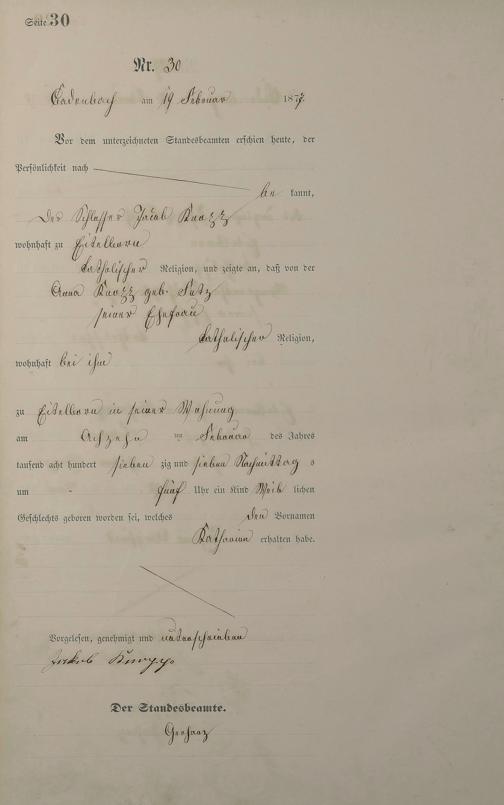 Seite 30
Nr. 30
Cadenbach am 19 Februar 1877.
Vor dem unterzeichneten Standesbeamten erschien heute, der
Persönlichkeit nach
be kannt,
Der Schlosser Jacob
wohnhaft zu Eitelborn
katholischer Religion, und zeigte an, daß von der
Anna geb.
seiner Ehefrau
katholischer Religion,
wohnhaft bei ihm
zu Eitelborn in seiner Wohnung
am Achzehn ten Februar des Jahres
tausend acht hundert sieben zig und sieben Nachmittag s
um fünf Uhr ein Kind Weib lichen
Geschlechts geboren worden sei, welches den Vornamen
Katharina erhalten habe.
Vorgelesen, genehmigt und unterschrieben
Jakob
Der Standesbeamte.